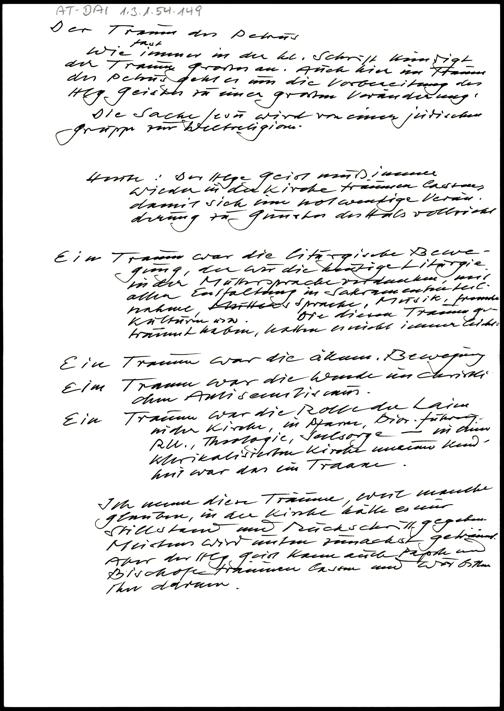 AT-DAI 1.3.1.54.149
Der Traum des Petrus
Wie fast immer in der hl. Schrift kündigt
der Traum Großes an. Auch hier im Traum
des Petrus geht es um die Vorbereitung des
Hlg. Geistes zu einer großen Veränderung:
Die Sache Jesu wird von einer jüdischen
Gruppe zur Weltreligion.
Heute: Der Hlge Geist muß immer
wieder in der Kirche träumen lassen,
damit sich eine notwendige Verän-
derung zu Gunsten des Heils vollzieht
Ein Traum war die liturgische Bewe-
gung, der wir die heutige Liturgie
in der Muttersprache verdanken, mit
aller Entfaltung in Sakramenten, Teil-
nahme, Sprache, Musik, fremde
Kulturen usw. Die diesen Traum ge-
träumt haben, hatten es nicht immer leicht.
Ein Traum war die ökum. Bewegung
Ein Traum war die Wende im christli
chen Antisemitismus.
Ein Traum war die Rolle der Laien
in der Kirche, in Pfarre, Diöz.führung
RU., Theologie, Seelsorge – in der
klerikalisierten Kirche meiner Kind-
heit war das ein Traum.
Ich nenne diese Träume, weil manche
glauben, in der Kirche hätte es nur
Stillstand und Rückschritt gegeben.
Meistens wird unten zunächst geträumt.
Aber der Hlg Geist kann auch Päpste und
Bischöfe träumen lassen und wir bitten
Ihn darum.